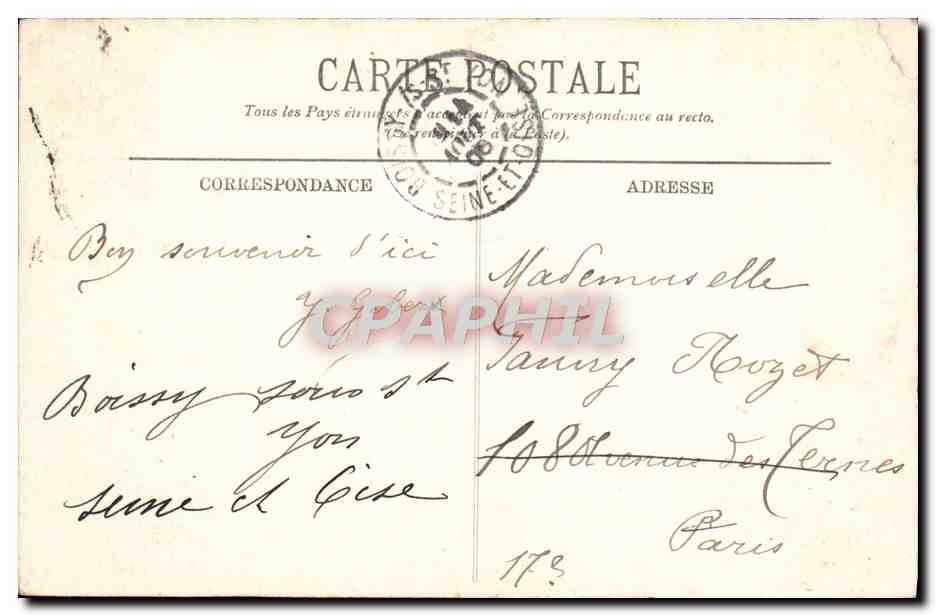 CARTE POSTALE
Tous les Pays étrangers n'acceptent pas la Correspondance au recto.
(Se renseigner à la Poste).
BOISSY-S-ST YON
AOUT
06
SEINE-ET-OISE
CORRESPONDANCE
Bon souvenir d'ici
Y.
Boissy sous St
Yon
Seine et Oise
ADRESSE
Mademoiselle
Fanny Rozet
108 Avenue des Ternes
Paris
17e
CPAPHIL